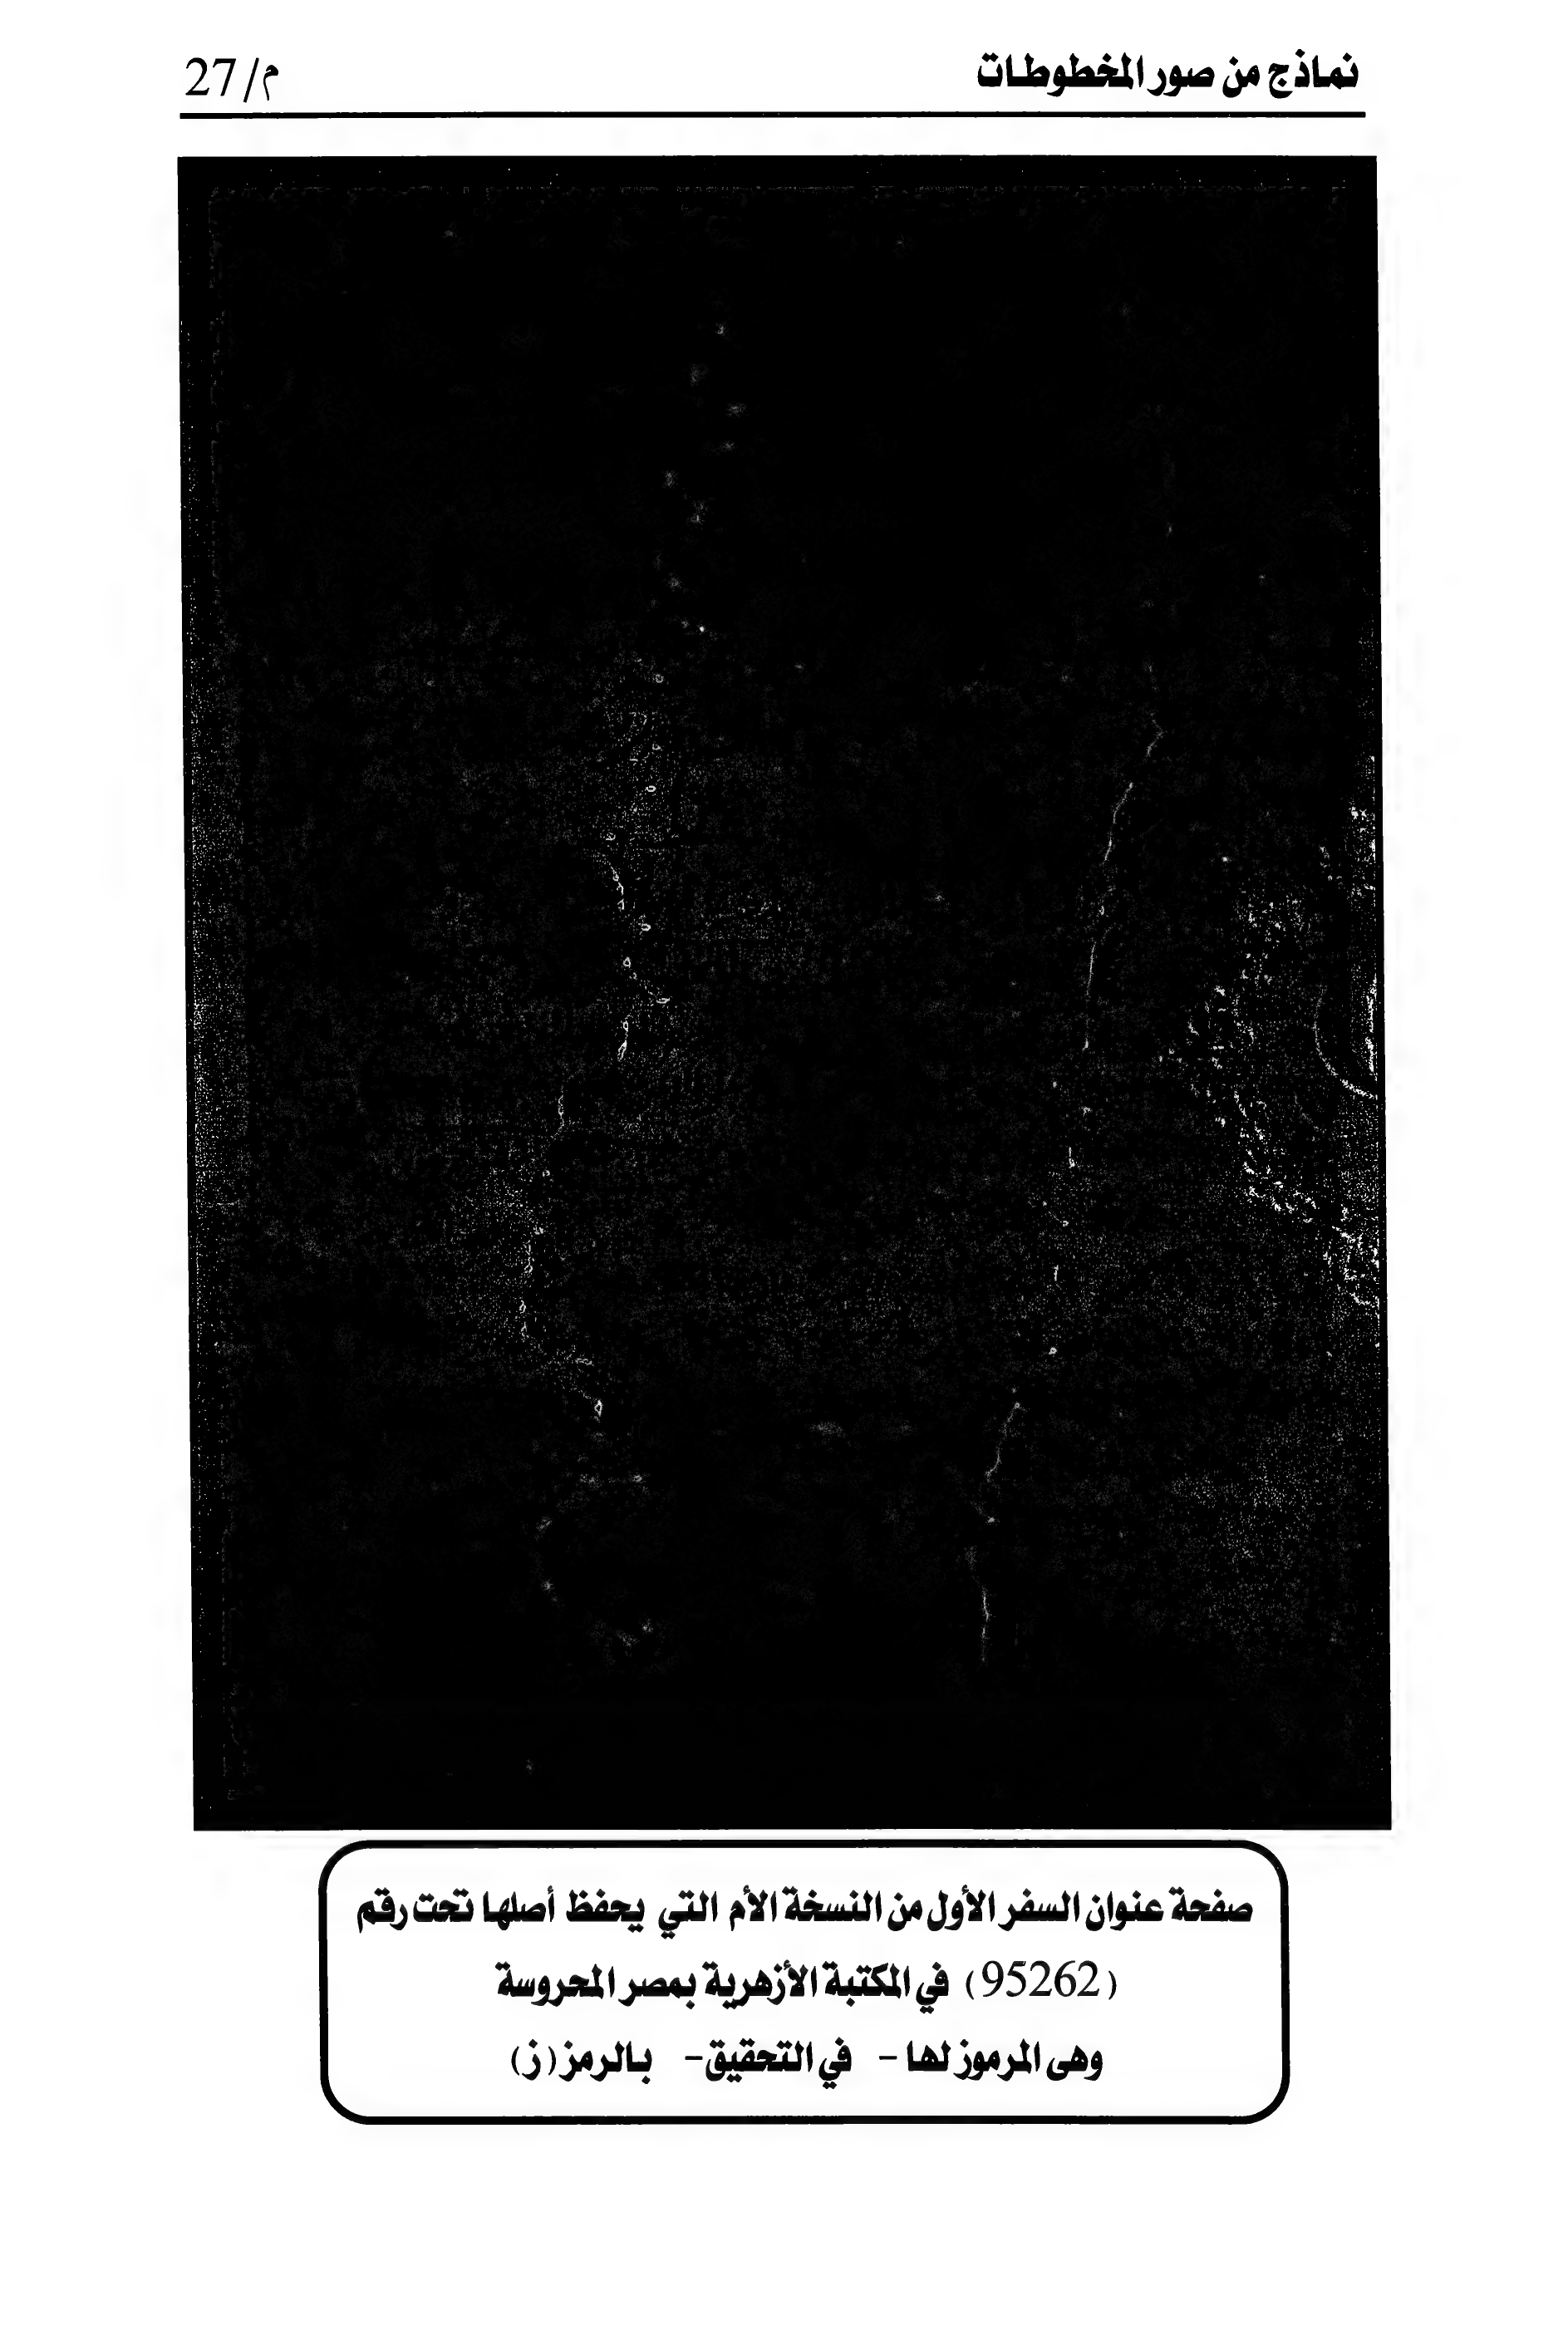 نماذج من صور المخطوطات
م/27
صفحة عنوان السفر الأول من النسخة الأم التي يحفظ أصلها تحت رقم
(95262) في المكتبة الأزهرية بمصر المحروسة
وهى المرموز لها - في التحقيق - بالرمز (ز)